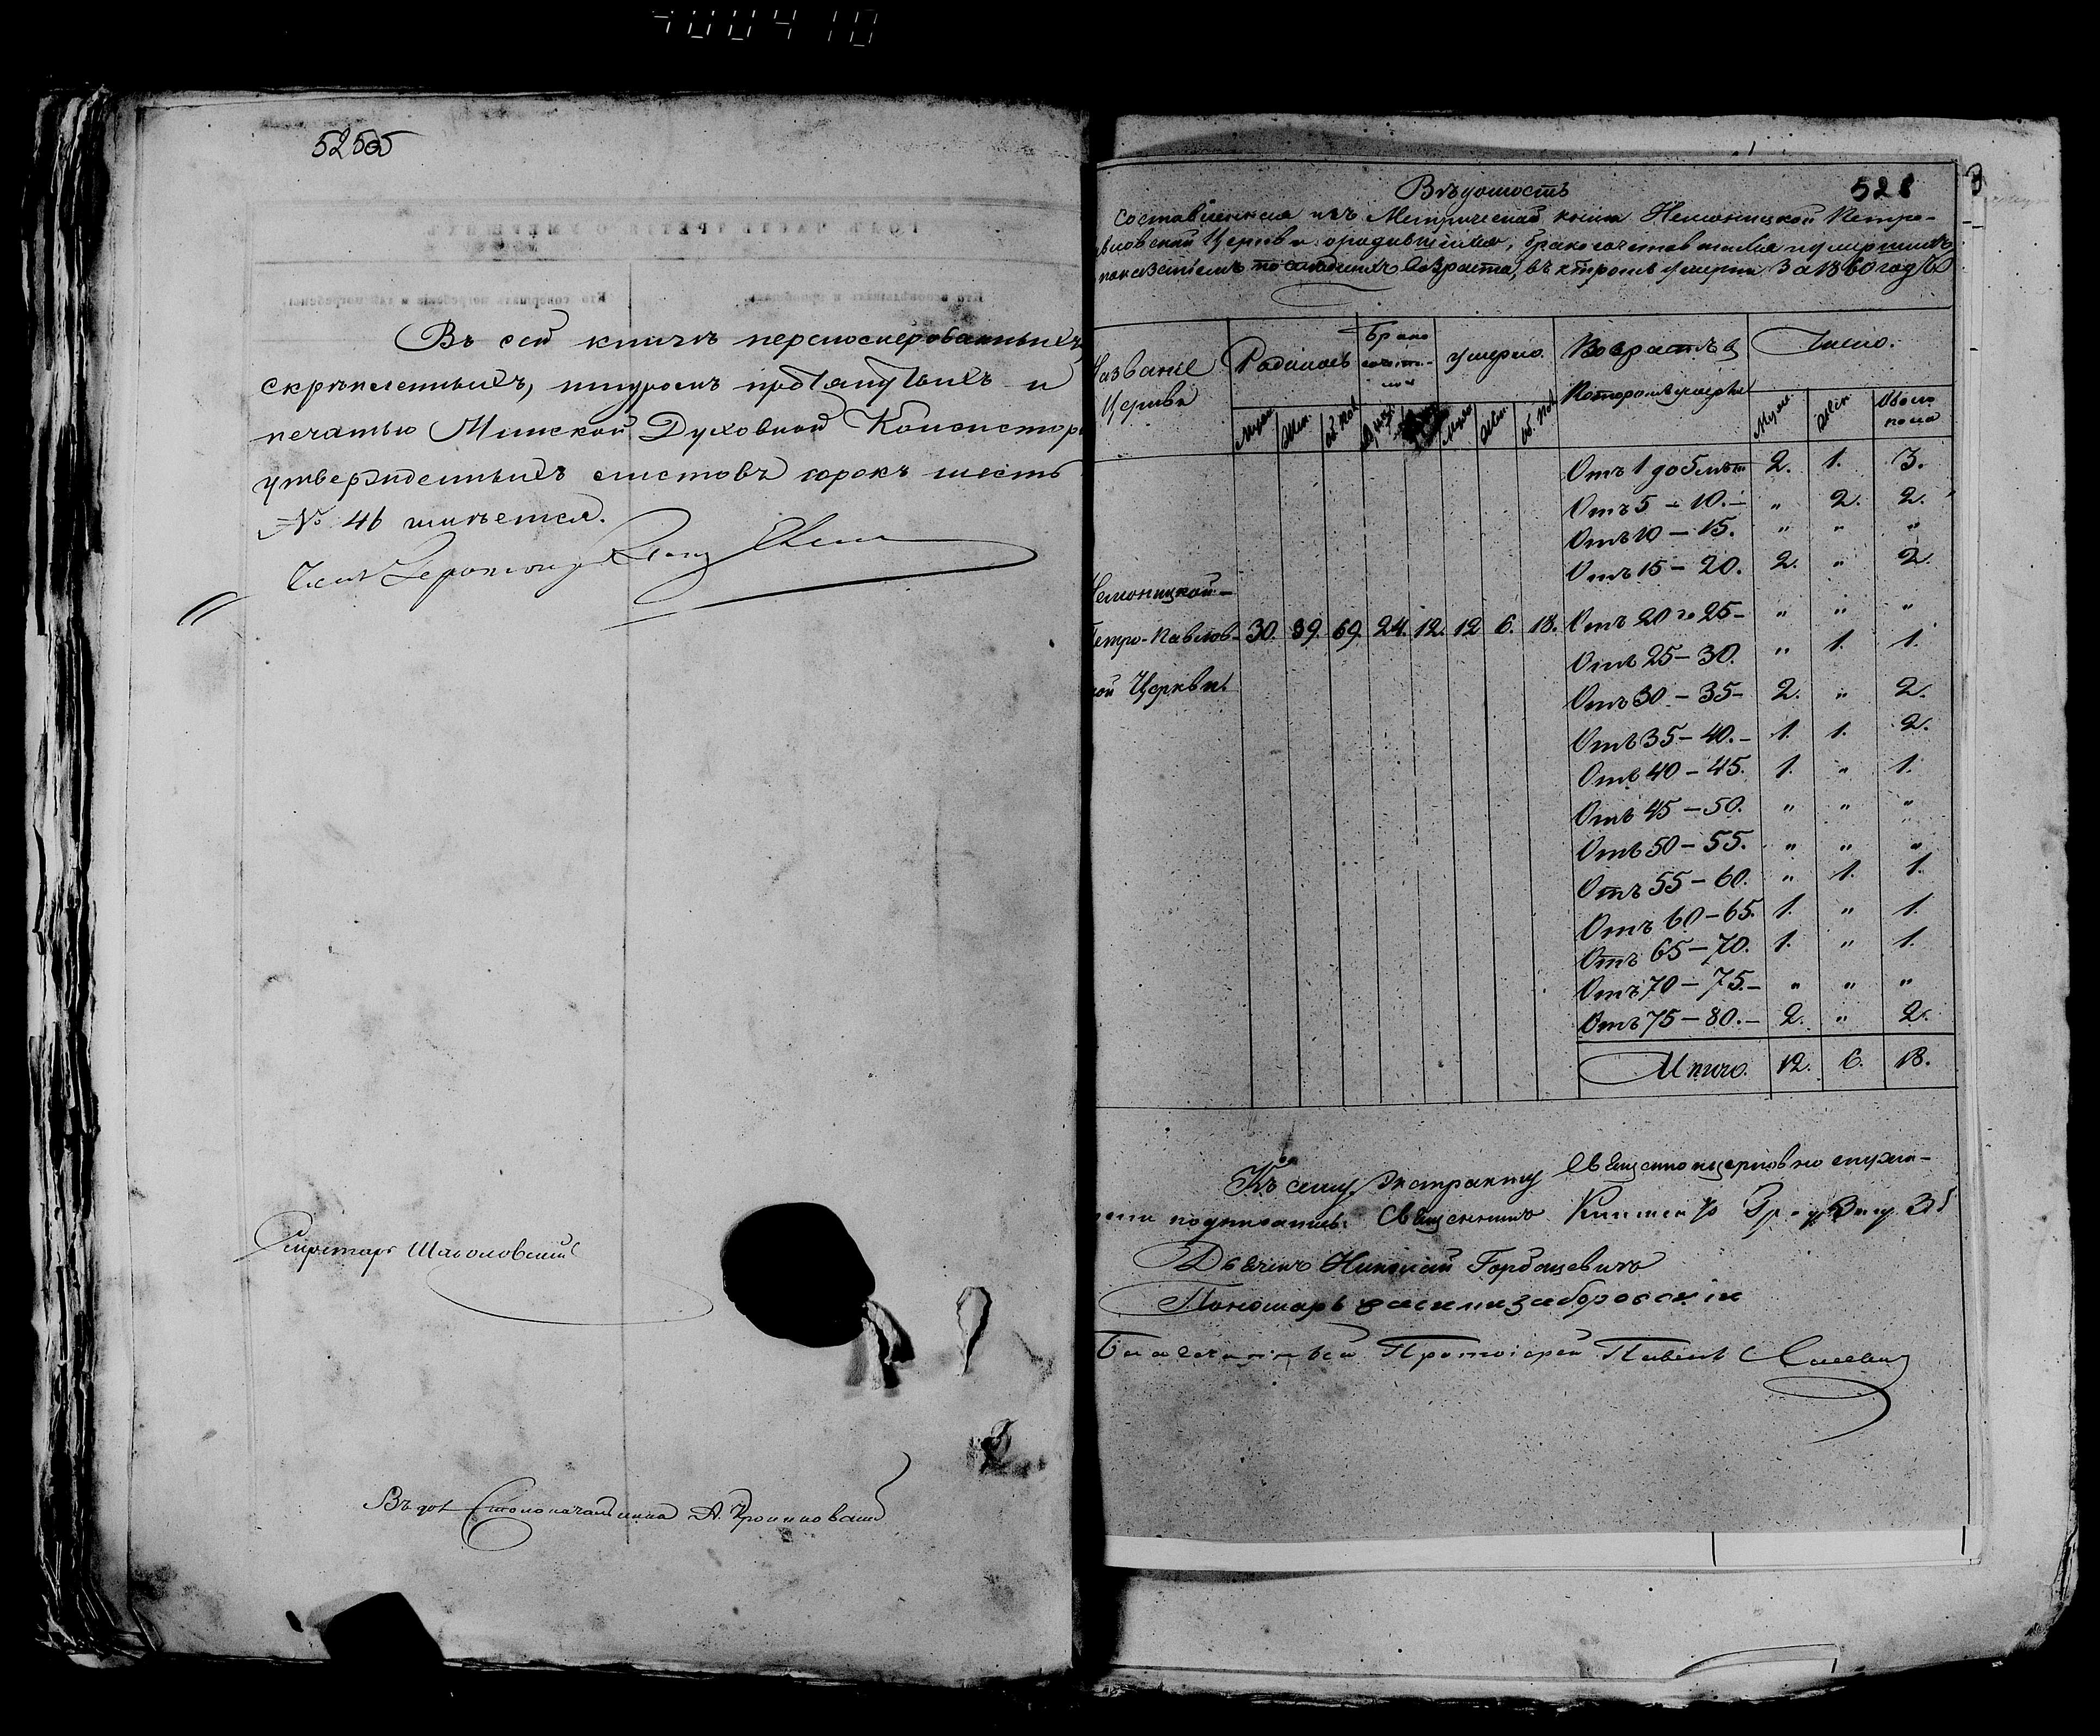 400410
525
Въ сей книгѣ перенумерованныхъ,
скрѣпленныхъ, шнуромъ протянутыхъ и
печатью Минской Духовной Консистор
утвержденныхъ листовъ сорокъ шесть
№ 46 имѣется.
Членъ
Секретарь
Въ дол Столоначальника А.
528
Вѣдомость
составленная изъ Метрической книги Немоницкой Петро-
вловской Церкви о родившихся, бракосочетавшихся и умершихъ
показаніемъ возраста, въ которомъ умерли За 1860 годъ
Названіе Церкви
Родилось
Брако
сочета-
Умерло
Возрастъ въ
Которомъ умерли
Число.
Муж. Жен. об. пол. Муж. Жен. об. пол. Муж. Жен. Обоего пола
Отъ 1 до 5 лѣтъ 2. 1. 3.
Отъ 5 – 10. – „ 2. 2.
Отъ 10 – 15. „ „ „
Отъ 15 – 20. 2. „ 2.
Немоницкой –
Петро-Павлов- 30. 39. 69. 24. 12. 12 6. 18. Отъ 20 до 25 – „ „ „
Отъ 25 – 30. „ 1. 1.
кой Церкви. Отъ 30 – 35 – 2. „ 2.
Отъ 35 – 40. – 1. 1. 2.
Отъ 40 – 45. 1. „ 1.
Отъ 45 – 50. „ „ „
Отъ 50 – 55. „ „ „
Отъ 55 – 60. „ 1. 1.
Отъ 60 – 65. 1. „ 1.
Отъ 65 – 70. 1. „ 1.
Отъ 70 – 75. – „ „ „
Отъ 75 – 80. – 2. „ 2.
Итого. 12. 6. 18.
Къ сему Экстракту Священноцерковнослужи-
тели подписались: Священникъ
Дьячекъ Николай Горбацевичъ
Пономарь Василій Заборовскій
Благочинный Протоіерей Павелъ